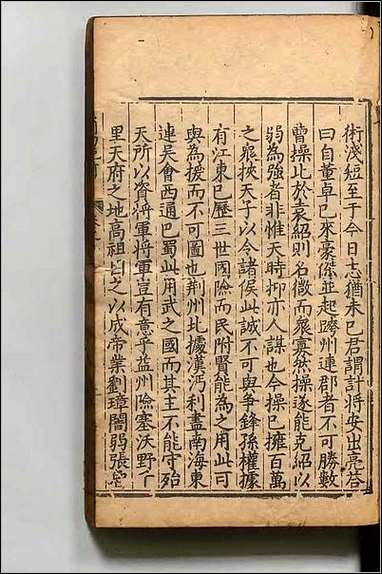 術淺短至于今日志猶未已君謂計將安出亮荅
曰自董卓已來豪傑並起跨州連郡者不可勝數
曹操比於袁紹則名微而衆寡然操遂能克紹以
弱為強者非惟天時抑亦人謀也今操已擁百萬
之衆挾天子以令諸侯此誠不可與爭鋒孫權據
有江東已歷三世國險而民附賢能為之用此可
與為援而不可圖也荆州北據漢沔利盡南海東
連吳會西通巴蜀此用武之國而其主不能守殆
天所以資將軍將軍豈有意乎益州險塞沃野千
里天府之地高祖因之以成帝業劉璋闇弱張